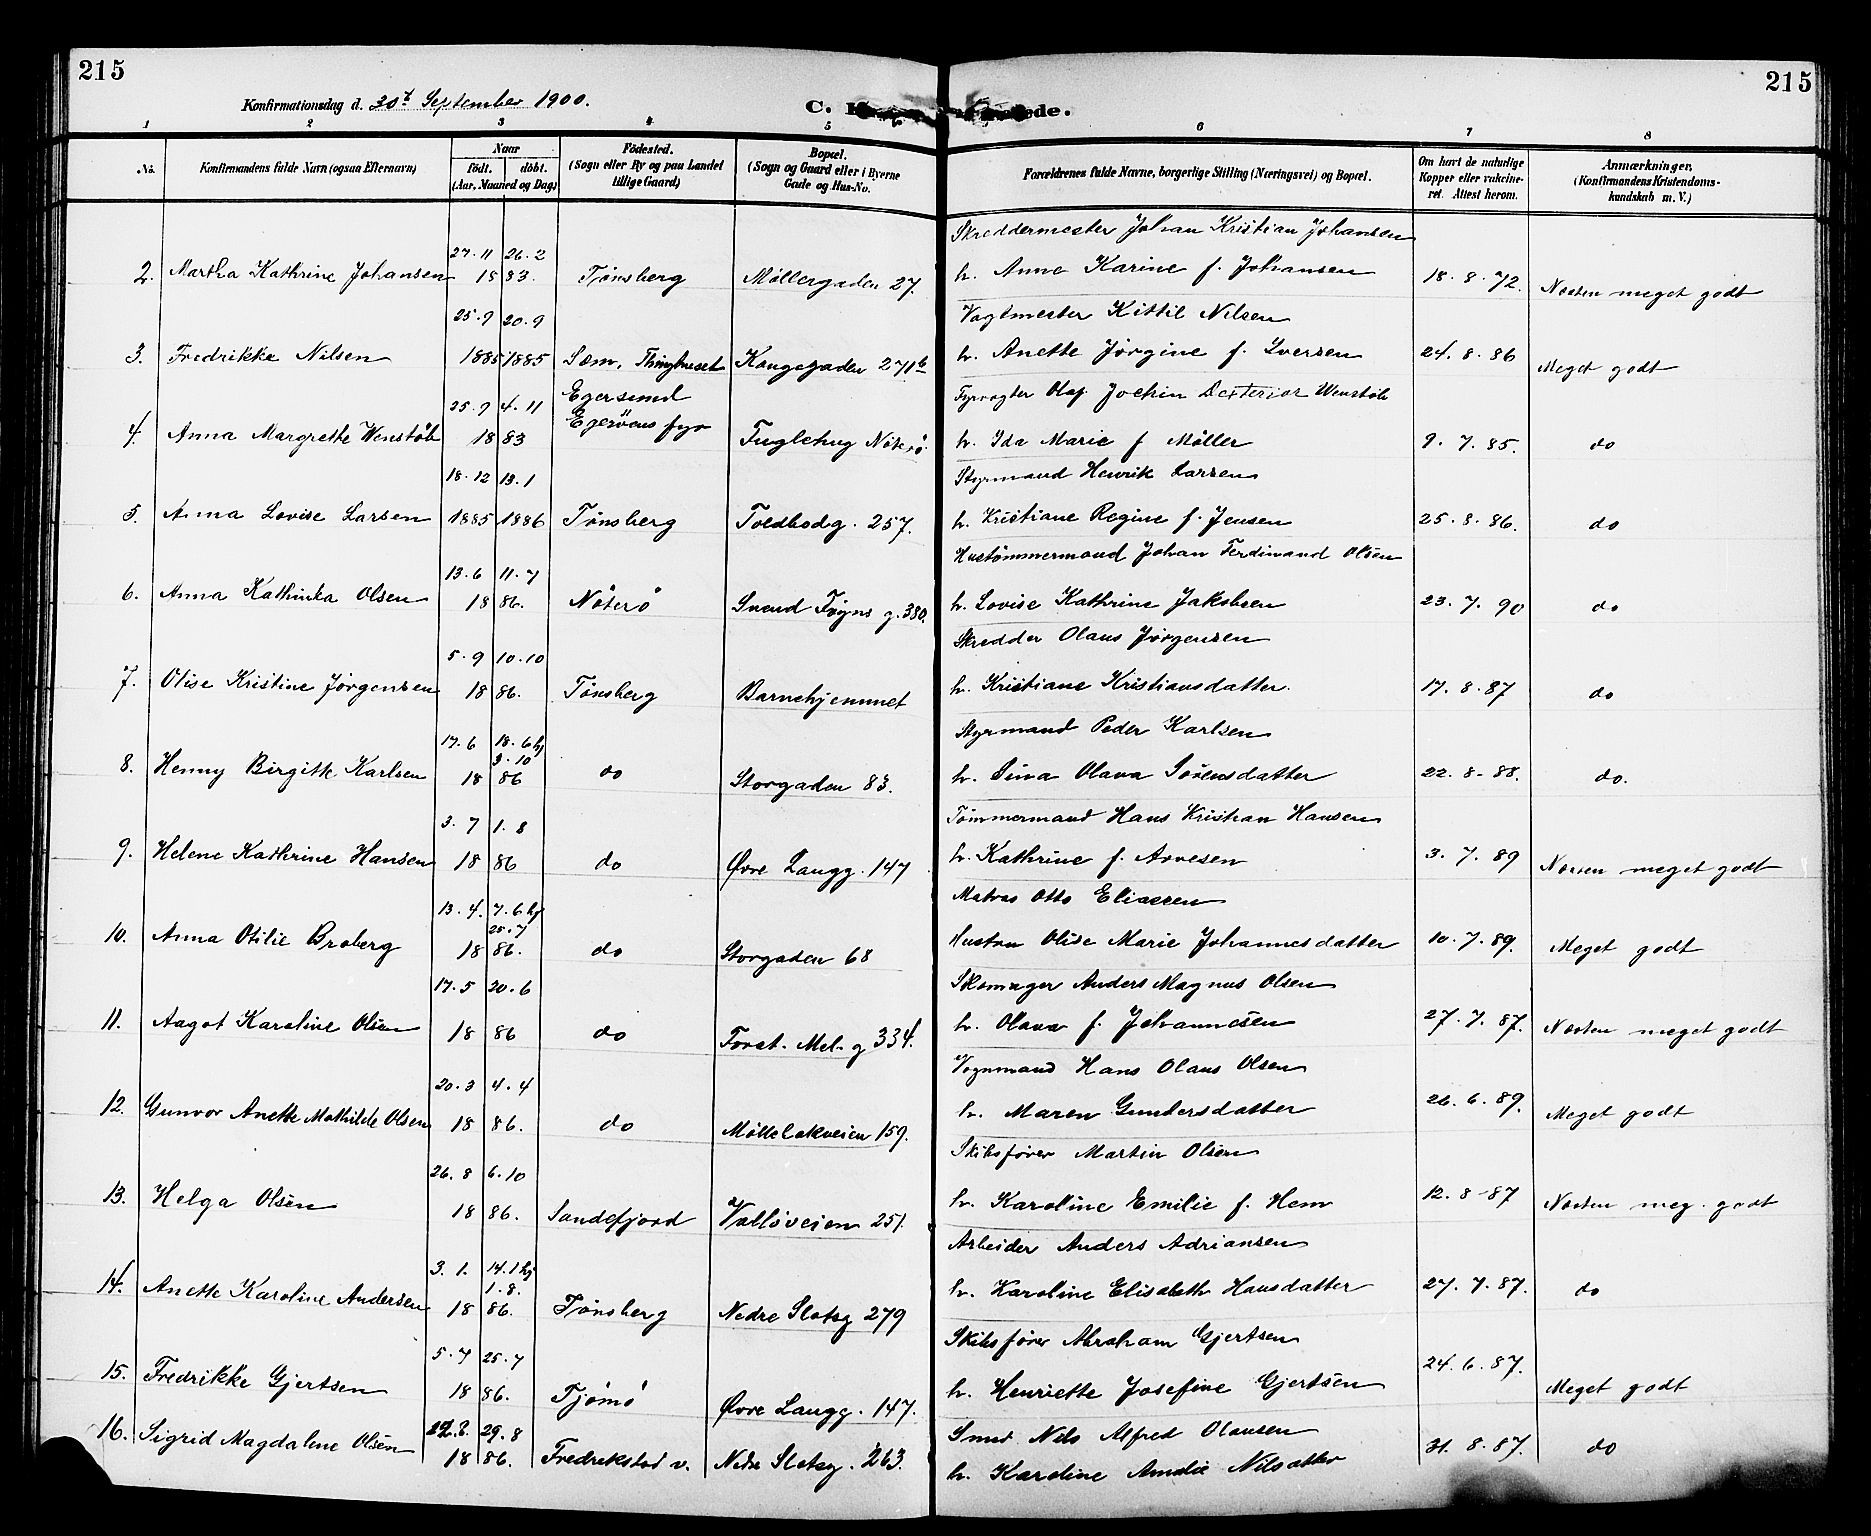 215
215
Konfirmationsdag d. 30t September 1900.
C.
1 2 3 4 5 6 7 8
No.
Konfirmandens fulde Navn (ogsaa Efternavn)
Naar
født. døbt.
(Aar, Maaned og Dag)
Födested.
(Sogn eller By og paa Landet
tillige Gaard)
Bopæl.
(Sogn og Gaard eller i Byerne
Gade og Hus-No.
Forældrenes fulde Navne, borgerlige Stilling (Næringsvei) og Bopæl.
Om havt de naturlige
Kopper eller vakcine-
ret. Attest herom.
Anmærkninger,
(Konfirmandens Kristendoms-
kundskab m. V.)
Skreddermester Johan Kristian Johansen
27.11 26.2
2. Martha Kathrine Johansen 18 83. Tønsberg Møllergaden 27. h. Anne Karine f. Johansen 18.8.72. Næsten meget godt
25.9 20.9 Vagtmester Kittil Nilsen
3. Fredrikke Nilsen 1885 1885 Sem, Thinghuset Kongegaden 271b h. Anette Jørgine f. Iversen 24.8.86 Meget godt
25.9 4.11 Egersund Fyrvogter Olaf Jochin Wenstøb
4. Anna Margrethe Wenstøb 18 83 Egerøens fyr Fuglehug Nøterø h. Ida Marie f Møller 9.7.85. do
18.12 13.1 Styrmand Henrik Larsen
5. Anna Lovise Larsen 1885 1886 Tønsberg Toldbodg. 257. h. Kristiane Regine f. Jensen 25.8.86. do
13.6 11.7 Hustømmermand Johan Ferdinand Olsen
6. Anna Kathinka Olsen 18 86. Nøterø Svend Foyns g. 380. h. Lovise Kathrine Jakobsen 23.7.90 do
5.9 10.10 Skredder Olaus Jørgensen
7. Olise Kristine Jørgensen 18 86. Tønsberg Barnehjemmet h. Kristiane Kristiansdatter. 17.8.87 do
17.6 18.6 hj 3.10 Styrmand Peder Karlsen
8. Henny Birgitte Karlsen 18 86 do Storgaden 83. h. Sina Olava Sørensdatter 22.8-88. do.
3.7 1.8 Tømmermand Hans Kristian Hansen
9. Helene Kathrine Hansen 18 86 do Øvre Langg. 147 h. Kathrine f. Arvesen 3.7.89 Næsten meget godt
13.4. 7.6 hj 25.7 Matros Otto Eliassen
10. Anna Otilie Broberg 18 86. do Storgaden 68 Hustru Olise Marie Johannesdatter 10.7.89. Meget godt
17.5 20.6 Skomager Anders Magnus Olsen
11. Aagot Karoline Olsen 18 86 do Forst. Mel. g 334. h. Olava f. Johannesen 27.7.87. Næsten meget godt
20.3 4.4 Vognmand Hans Olaus Olsen
12. Gunvor Anette Mathilde Olsen 18 86. do Møllebakveien 159. h. Maren Gundersdatter 26.6.89. Meget godt
26.8 6.10 Skibsfører Martin Olsen
13. Helga Olsen 18 86. Sandefjord Valløveien 251. h. Karoline Emilie f. Hem 12.8-87 Næsten meg. godt
3.1. 14.1 hj 1.8. Arbeider Anders Adriansen
14. Anette Karoline Andersen 18 86. Tønsberg Nedre Slotsg 279 h. Karoline Elisabeth Hansdatter 27.7.87. do
5.7 25.7 Skibsfører Abraham Gjertsen
15. Fredrikke Gjertsen 18 86. Tjømø Øvre Langg. 147. h. Henriette Josefine Gjertsen 24.6.87. Meget godt
29.8 Smed Nils Alfred Olausen
16. Sigrid Magdalene Olsen 18 86. Fredrikstad v. Nedre Slotsg. 263. h. Karoline Amalie Nilsdatter 31.8.87. do